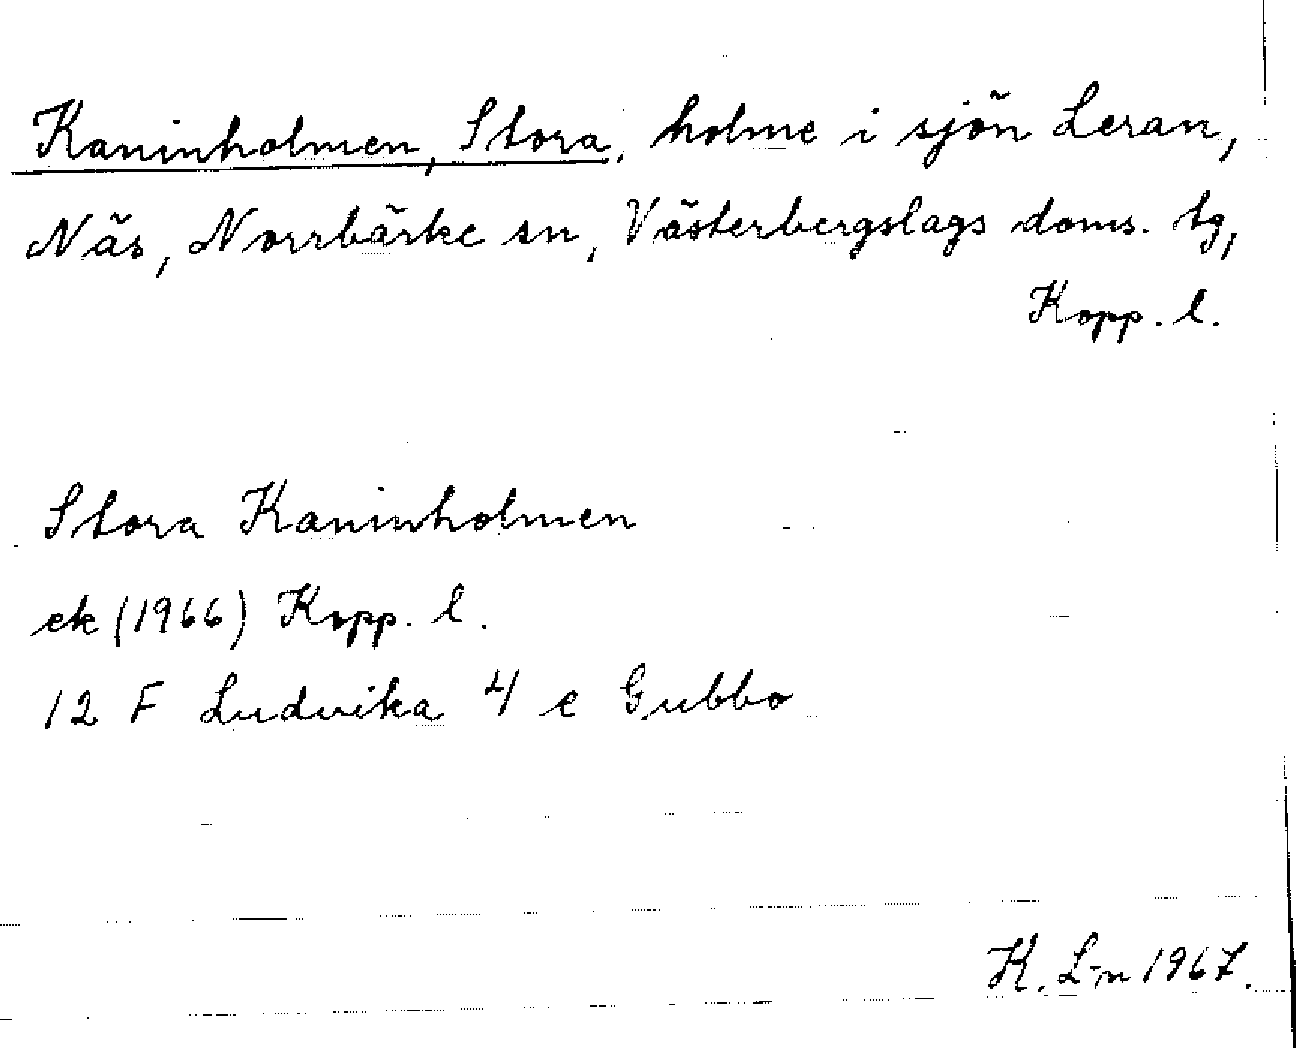 Kaninholmen, Stora, holme i sjön Leran,
Näs, Norrbärke sn, Västerbergslags doms. tg,
Kopp. l.
Stora Kaninholmen
ek (1966) Kopp. l.
12 F Ludvika 4 e Gubbo
K. L-n 1967.